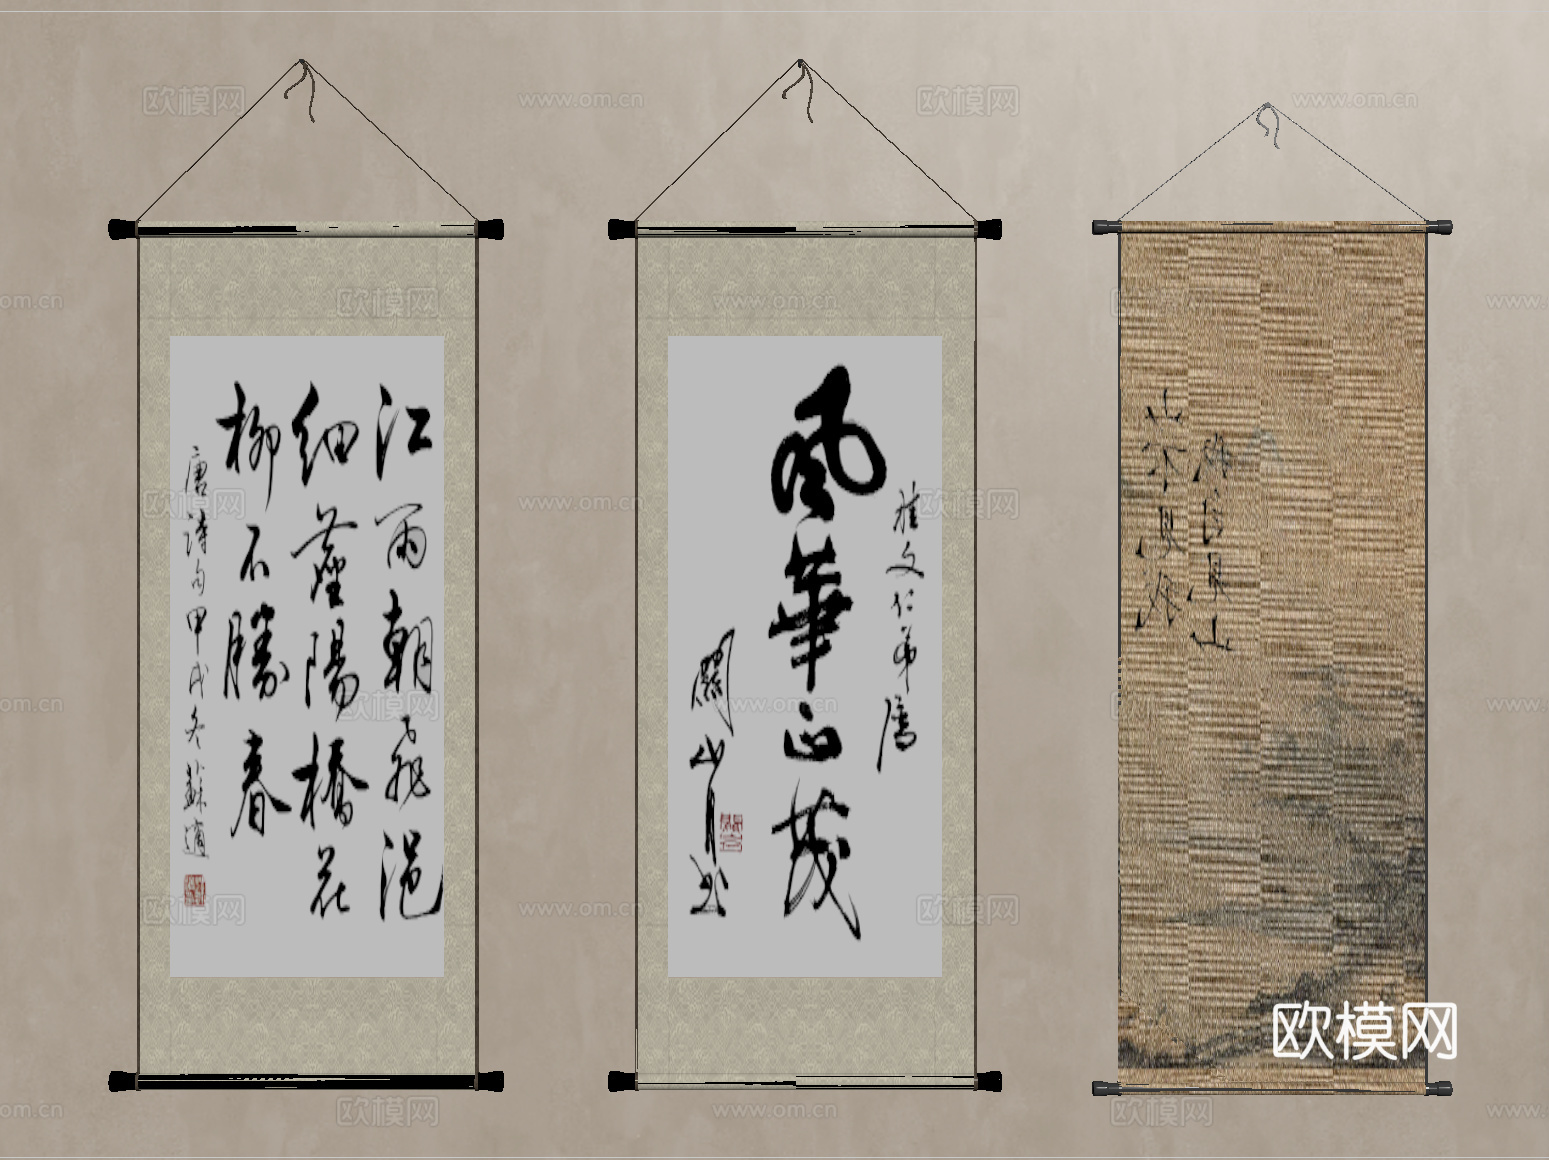 江雨朝飛浥
細塵陽橋花
柳不勝春
唐詩句甲戌冬蘇適
文仁弟属
風華正茂
關山月书
欧模网
www.om.cn